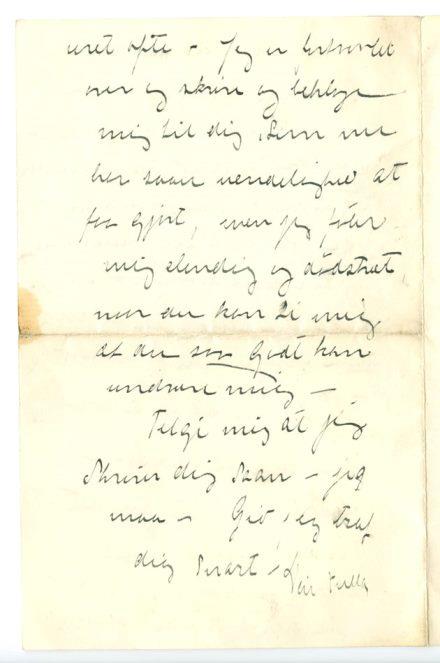 uret ofte – Jeg er fortvivlet
over og skrive og beklage
mig til dig, som nu
har saan uendelighed at
faa gjort, men jeg føler
mig elendig og dødstræt,
naar du kan si mig
at du saa godt kan
undvære mig –
Tilgi mig at jeg
skriver dig saan – jeg
maa – Giv jeg traf
dig snart! Din Tulla